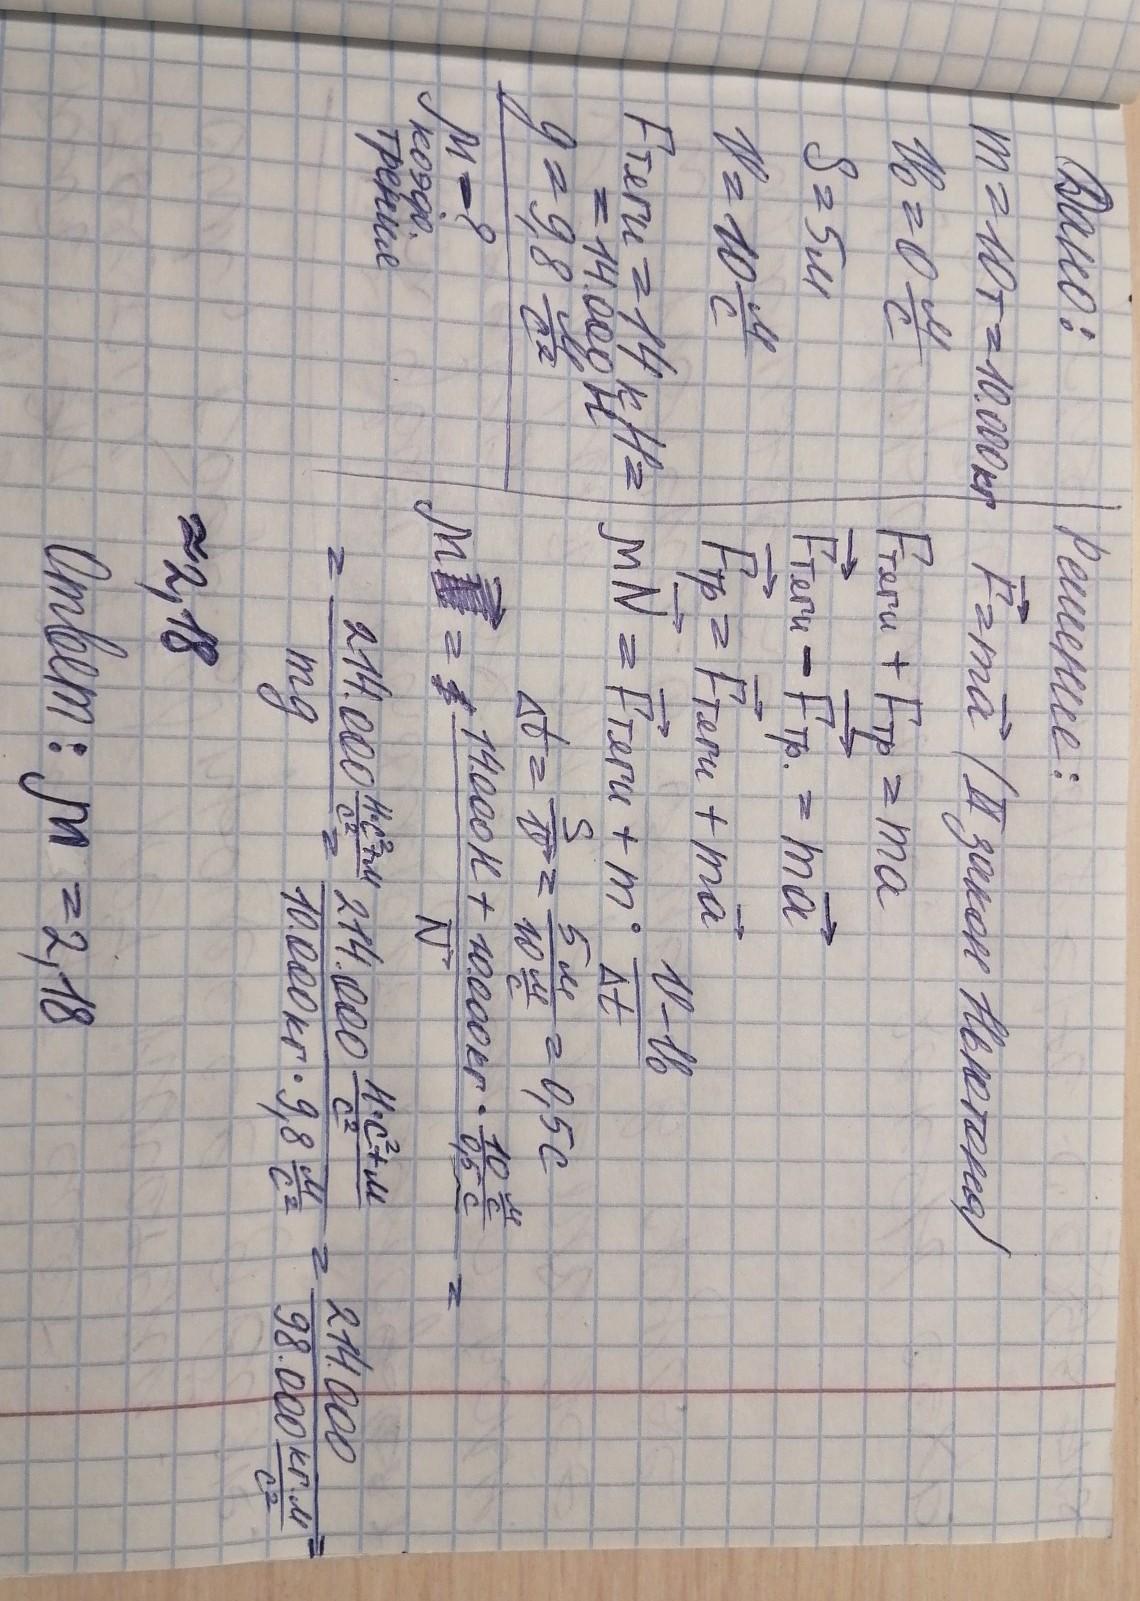 Дано:
m = 10т = 10.000кг
V₀ = 0 м/с
S = 5м
V = 10 м/с
Fтяги = 14 кН =
= 14.000 Н
g = 9,8 м/с²
μ - ?
коэф.
трение
Решение:
F = ma (II закон Ньютона)
Fтяги + Fтр = ma
Fтяги - Fтр. = ma
Fтр = Fтяги + ma
μN = Fтяги + m · V - V₀ / Δt
Δt = S/V = 5м / 10 м/с = 0,5с
μ = 14000Н + 10.000кг · 10 м/с / 0,5 с / N =
= 214.000 Н·с²+м/с² / mg = 214.000 Н·с²+м/с² / 10.000кг · 9,8 м/с² = 214.000 / 98.000 кг·м/с² =
≈ 2,18
Ответ: μ = 2,18